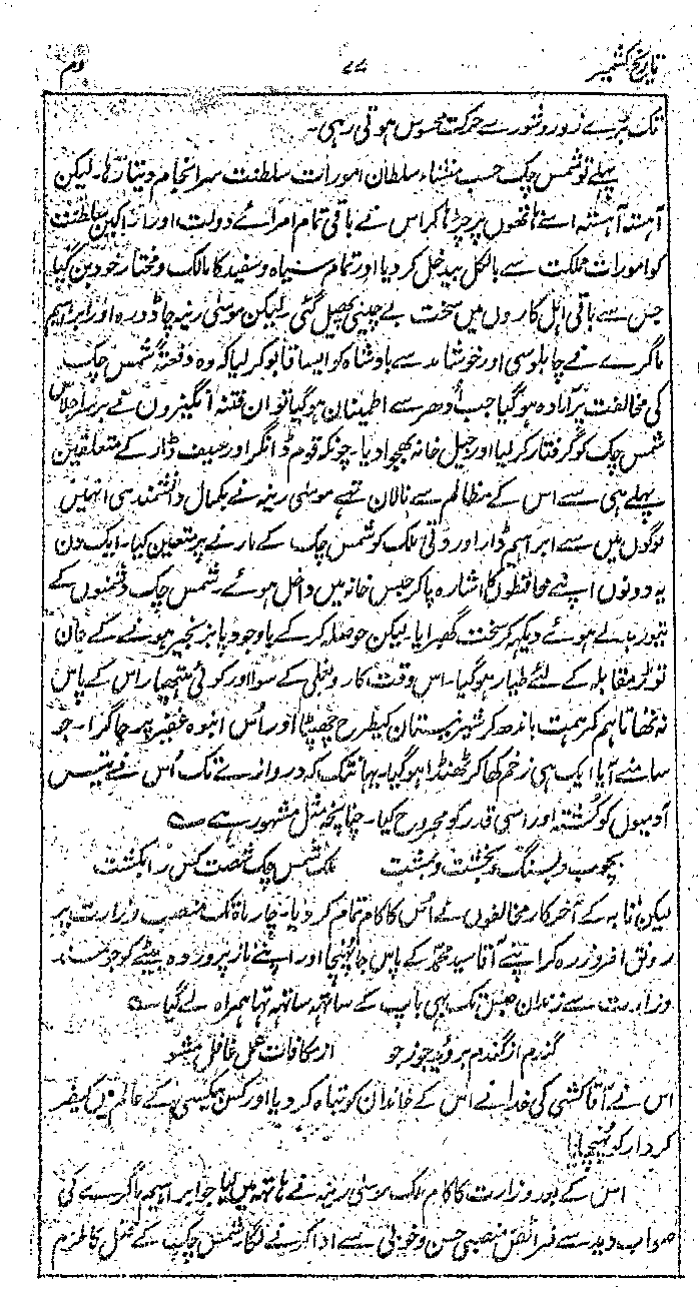 تاریخ کشمیر ۷۷ دوم
تک بڑے زور و شور سے حرکت محسوس ہوتی رہی۔
پہلے تو شمس چک حسب منشاء سلطان امورات سلطنت سرانجام دیتا رہا۔ لیکن
آہستہ آہستہ اسے ہاتھوں پر چڑہا کر اس نے باقی تمام امرائے دولت اور اراکین سلطنت
کو امورات مملکت سے بالکل بیدخل کر دیا اور تمام سیاہ و سفید کا مالک و مختار خود بن گیا
جس سے باقی اہل کاروں میں سخت بے چینی پھیل گئی۔ لیکن موسٰی رینہ چاڈورہ اور ابراہیم
ماگرے نے چاپلوسی اور خوشامد سے بادشاہ کو ایسا قابو کر لیا کہ وہ دفعتہً شمس چک
کی مخالفت پر آمادہ ہو گیا جب اُدھر سے اطمینان ہو گیا تو ان فتنہ انگیزوں نے برسر اجلاس
شمس چک کو گرفتار کر لیا اور جیل خانہ بھجوا دیا۔ چونکہ قوم ڈانگر اور سیف ڈار کے متعلقین
پہلے ہی سے اس کے مظالم سے نالان تھے موسٰی رینہ نے بکمال دانشمندی انہیں
لوگوں میں سے ابراہیم ڈار اور وقی ملک کو شمس چک کے مارنے پر متعین کیا۔ ایک دن
یہ دونوں اپنے محافظوں کا اشارہ پا کر حبس خانہ میں داخل ہوئے۔ شمس چک دشمنوں کے
تیور بدلے ہوئے دیکہہ کر سخت گھبرایا۔ لیکن حوصلہ کر کے باوجود پابزنجیر ہونے کے جان
توڑ مقابلہ کے لئے طیار ہو گیا۔ اس وقت کارد بغلی کے سوا اور کوئی ہتھیار اس کے پاس
نہ تھا تاہم کمر ہمت باندھ کر شیر نیستان کیطرح جھپٹا اور اُس انبوہ غفیر پر جا گرا۔ جو
سامنے آیا ایک ہی زخم کھا کر ٹھنڈا ہو گیا۔ یہانتک کہ دروازے تک اُس نے تیس
آدمیوں کو کُشتہ اور اسی قدر کو مجروح کیا۔ چنانچہ مثل مشہور ہے ؎
بچوب و بسنگ و بخشت و بمشت ملک شمس چک شصت کس را بکشت
لیکن تا بہ کے آخرکار مخالفوں نے اُس کا کام تمام کر دیا۔ چار ماہ تک منصب وزارت پر
رونق افروز رہ کر اپنے آقا سید محمد کے پاس جا پہنچا اور اپنے ناز پروردہ بیٹے کو جو مسند
وزارت سے زندان تک بہی باپ کے ساتہہ ساتہہ تہا ہمراہ لے گیا ؎
گندم از گندم بروید جو ز جو از مکافات عمل غافل مشو
اس نے آقا کشی کی خدا نے اس کے خاندان کو تباہ کر دیا اور کس بیکسی کے عالم میں کیفر
کردار کو پہنچایا!
اس کے بعد وزارت کا کام ملک موسٰی رینہ نے ہاتہہ میں لیا جو ابراہیم ماگرے کی
صواب دید سے فرائض منصبی حسن و خوبی سے ادا کرنے لگا۔ شمس چک کے قتل کا ملزم